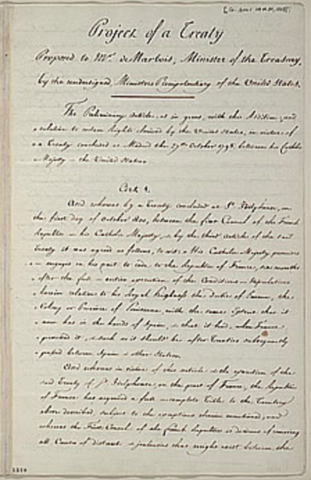 Project of a Treaty
Proposed to Mr. de Marbois, Minister of the Treasury,
by the undersigned, Ministers Plenipotentiary of the United States.
The Preliminary Articles, as is given, with the Addition, and
relation to certain Rights claimed by the United States, in virtue of
a Treaty concluded at Madrid the 27th October 1795, between his Catholic
Majesty & the United States
And whereas by a Treaty concluded at St. Ildefonso, on
the first day of October 1800, between the first Consul of the French
Republic & his Catholic Majesty, & by the third article of the said
Treaty it was agreed as follows, to wit: His Catholic Majesty promises
& engages on his part to cede to the Republic of France, six months
after the full & entire execution of the Conditions & Stipulations
herein relative to his Royal Highness the Duke of Parma, the
Colony or Province of Louisiana, with the same Extent that it
now has in the hands of Spain, & that it had, when France
possessed it, & such as it should be after Treaties subsequently
passed between Spain & other States.
And whereas in virtue of this article & the operation of the
said Treaty of St. Ildefonso, on the part of France, the Republic
of France has acquired a full & complete Title to the Country
above described subject to the exceptions therein mentioned, and
whereas the First Consul of the french Republic is desirous of removing
all Causes of distrust & jealousies that might exist between the